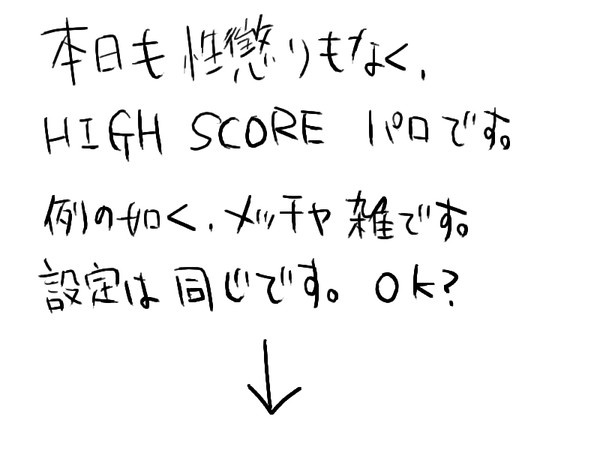 本日も性懲りもなく、
HIGH SCORE パロです。
例の如く、メッチャ雑です。
設定は同じです。OK?